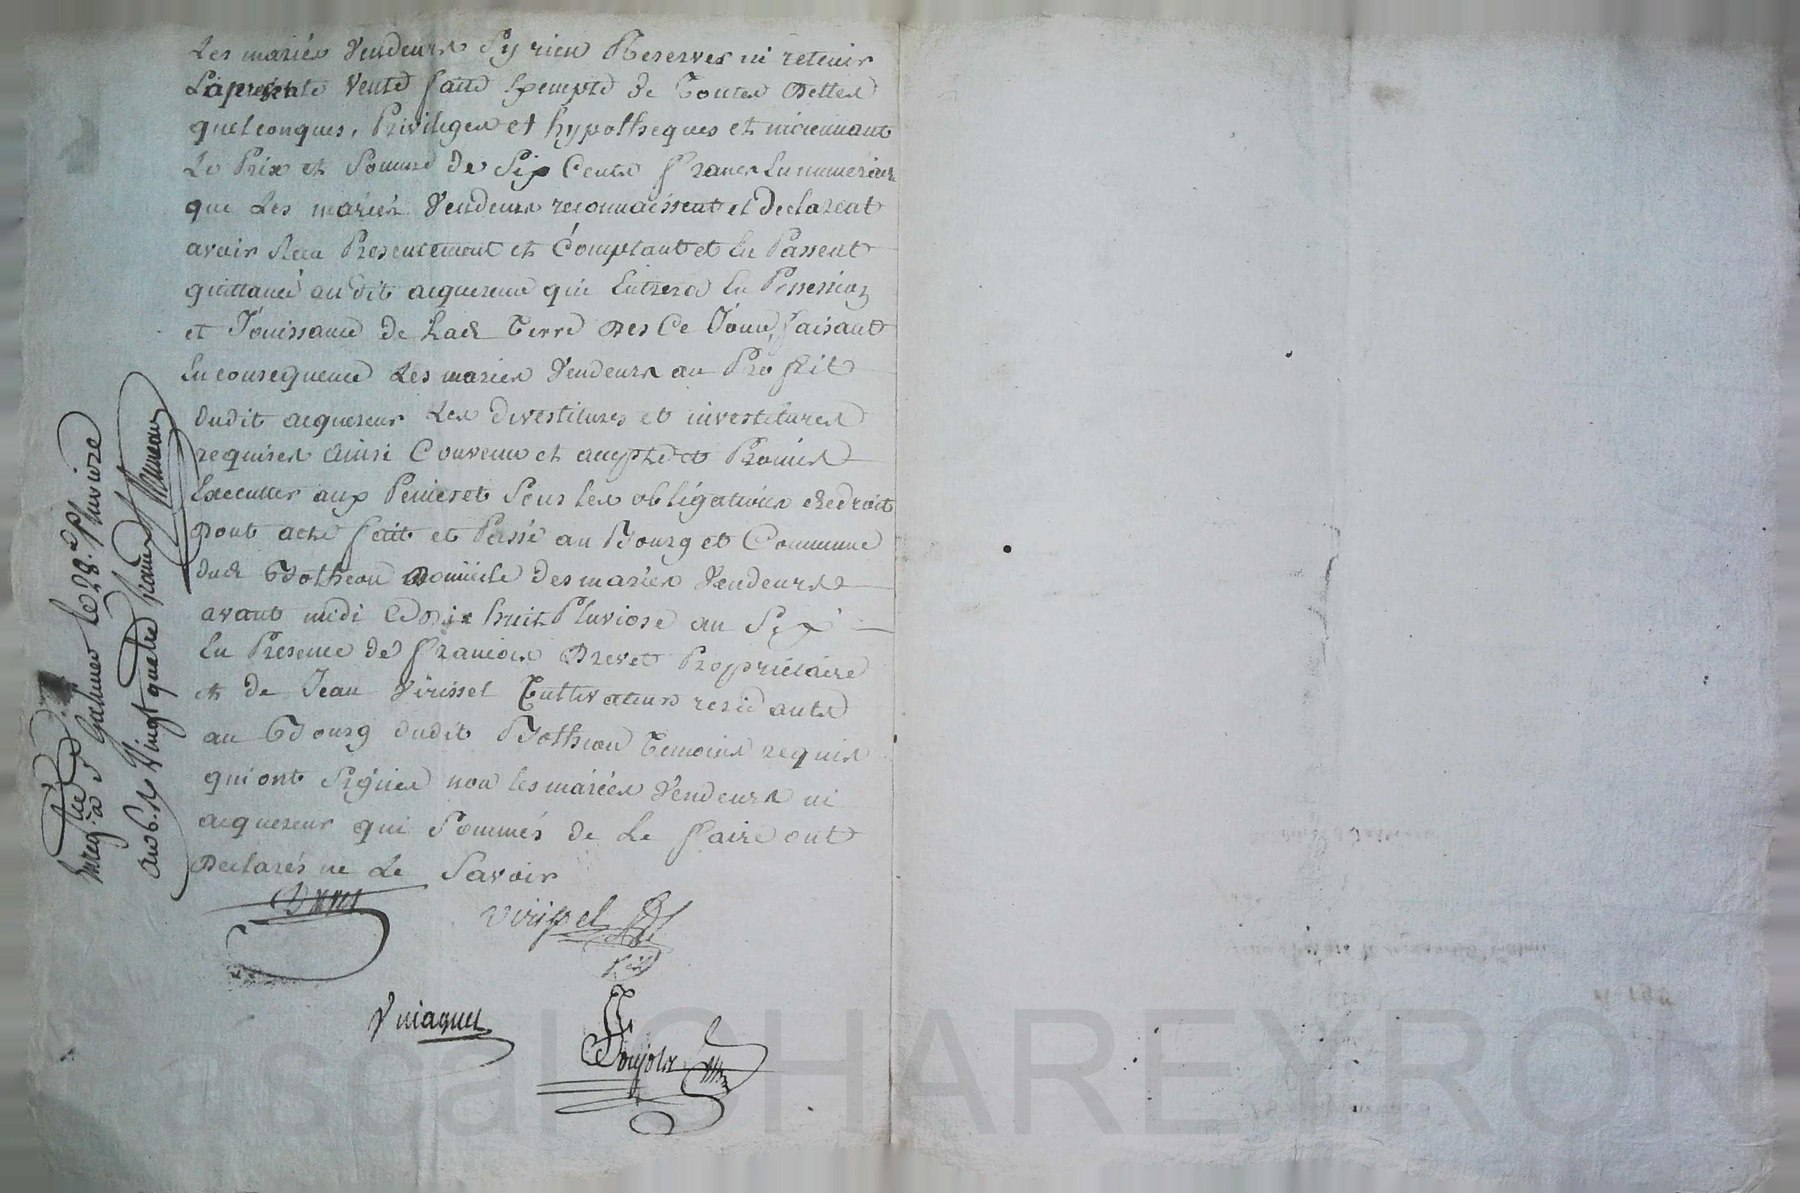 Les mariés Vendeurs Sy rien Reserver ni retenir
La presente Vente faitte Exempte de Toutes Dettes
quelconques, Privileges et hypotheques et moiennant
Le Prix et Somme de Six Cents francs En numeraire
que Les mariés Vendeurs reconnaissent et declarent
avoir Recu Presentement et Comptant et En Passent
quittance au dit acquereur qui Entrera En Possession
et Jouissance de Lad. Terre Des Ce Jour, faisant
En consequence Les mariés Vendeurs au Profit
dudit acquereur Les divestitures et investitures
requises Ainsi Convenu et accepté et Promis
Executter aux Peines et Sous Les obligations de droit
Dont acte fait et Passé au Bourg et Commune
dud. Bothéon Domicile des mariés Vendeurs
avant midi Dix huit Pluviose an Six
En Presence de francois Drevet Propriétaire
et de Jean Virissel Cultivateur residants
au Bourg dudit Bothéon Temoins requis
qui ont Signés non les mariés Vendeurs ni
acquereur qui Sommés de Le faire ont
Declarés ne Le Savoir
Drevet
Virissel
Vinaquet
Boujola
Enreg. à St Galmier le 28e. Pluviose
an 6. R Vingt quatre francs
Pascal CHAREYRON